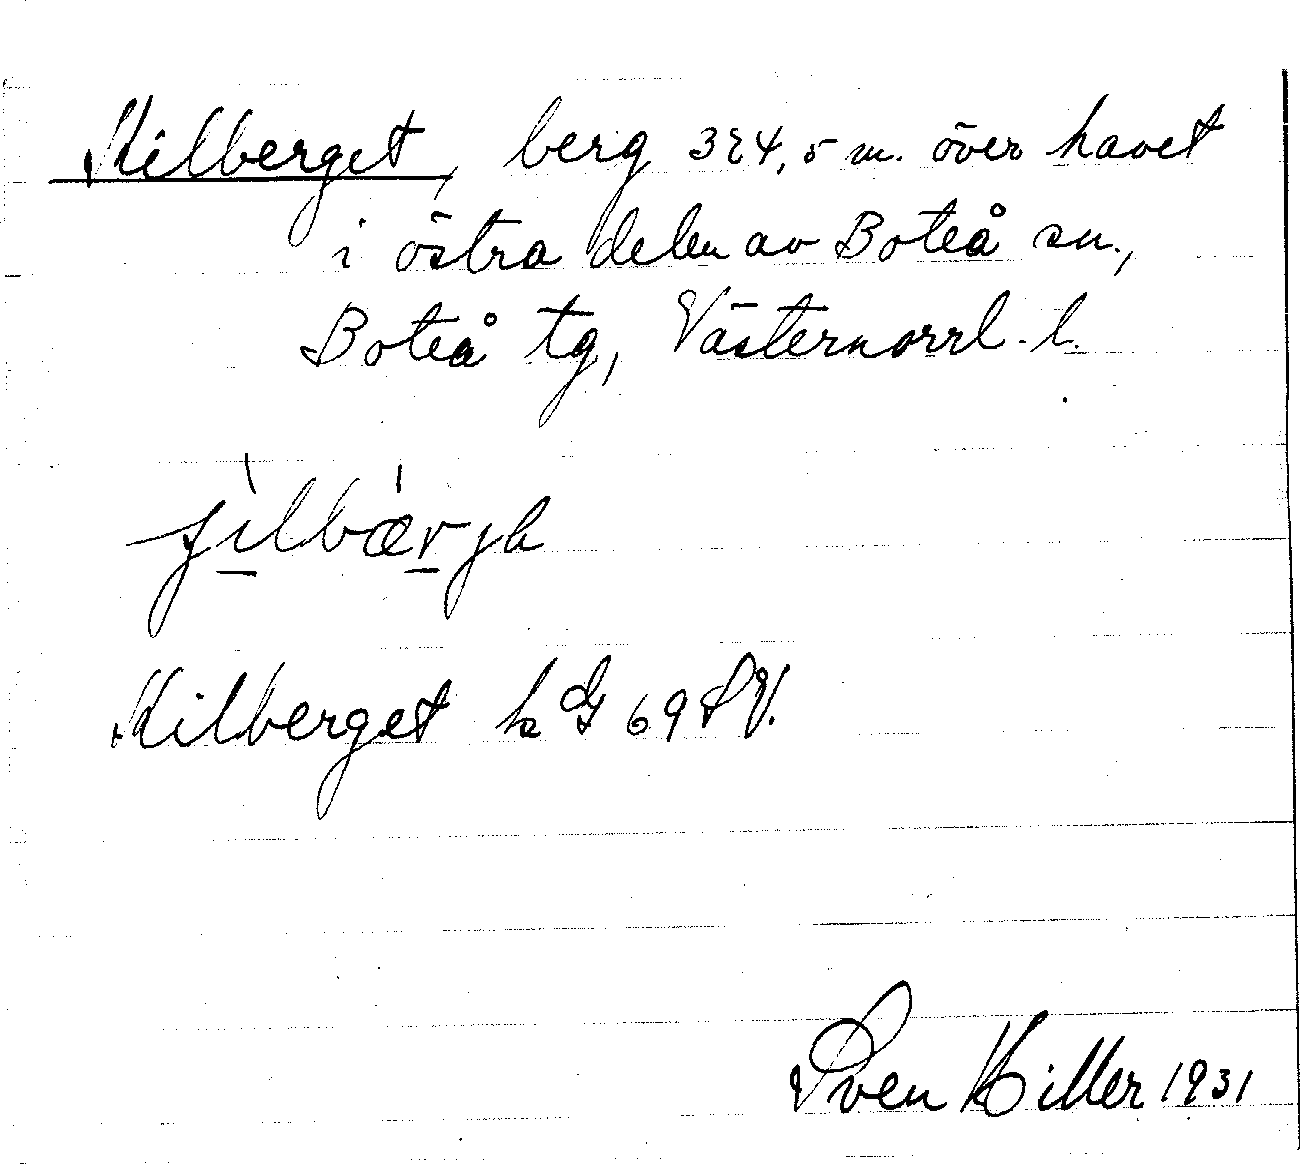 Kilberget, berg 324,5 m. över havet
i östra delen av Boteå sn.,
Boteå tg, Västernorrl. l.
Kilberget k G 69 SV.
Sven Hiller 1931